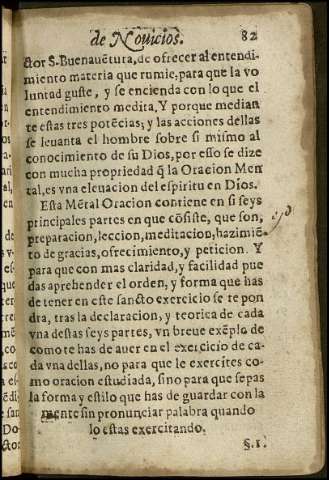 de Novicios. 82
ctor S. Buenauẽtura, de ofrecer al entendi-
miento materia que rumie, para que la vo
luntad guste, y se encienda con lo que el
entendimiento medita, Y porque median
te estas tres potẽcias, y las acciones dellas
se leuanta el hombre sobre si mismo al
conocimiento de su Dios, por esso se dize
con mucha propriedad q̃ la Oracion Men
tal, es vna eleuacion del espiritu en Dios.
Esta Mẽtal Oracion contiene en si seys
principales partes en que cõsiste, que son,
preparacion, leccion, meditacion, hazimiẽ-
to de gracias, ofrecimiento, y peticion. Y
para que con mas claridad, y facilidad pue
das aprehender el orden, y forma que has
de tener en este sancto exercicio se te pon
dra, tras la declaracion, y teorica de cada
vna destas seys partes, vn breue exẽplo de
como te has de auer en el exercicio de ca-
da vna dellas, no para que le exercites co-
mo oracion estudiada, sino para que sepas
la forma y estilo que has de guardar con la
mente sin pronunciar palabra quando
lo estas exercitando.
§. 1.